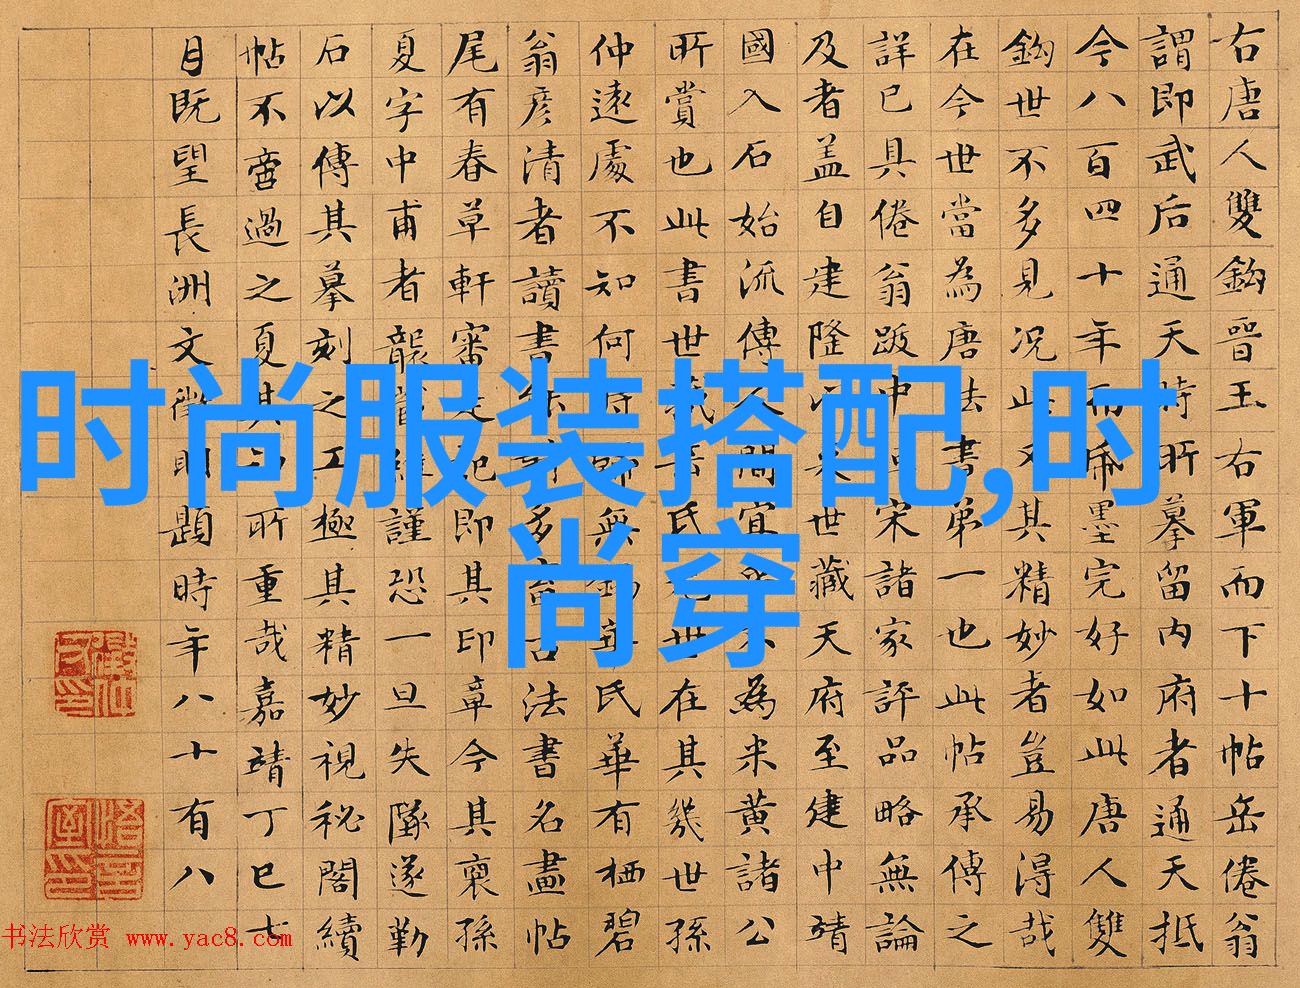 右唐人雙鈎晉王右軍而下十帖岳倦翁
謂即武后通天時所摹留内府者通天抵
今八百四十年而紙墨完好如此唐人雙
鈎世不多見况此又其精妙者豈易得哉
在今世當為唐法書第一也此帖承傳之
詳已具倦翁跋中宋諸家評品略無論
及者盖自建隆以來世藏天府至建中靖
國入石始流傳人間宜不為米黄諸公
所賞也此書世藏岳氏世在其幾世孫
仲遠處不知何時歸無錫華氏華有栖碧
翁彦清者讀書多畜古法書名畫帖
尾有春草軒審定記即其印章今其裔孫
夏字中甫者襲謹恐一旦失墜遂勒
石以傳其摹刻之工極其精妙視秘閣續
帖不啻過之夏其所重哉嘉靖丁巳七
月既望長洲文徵明題時年八十有八
时尚服装搭配,时
尚穿
书法欣赏 www.yac8.com